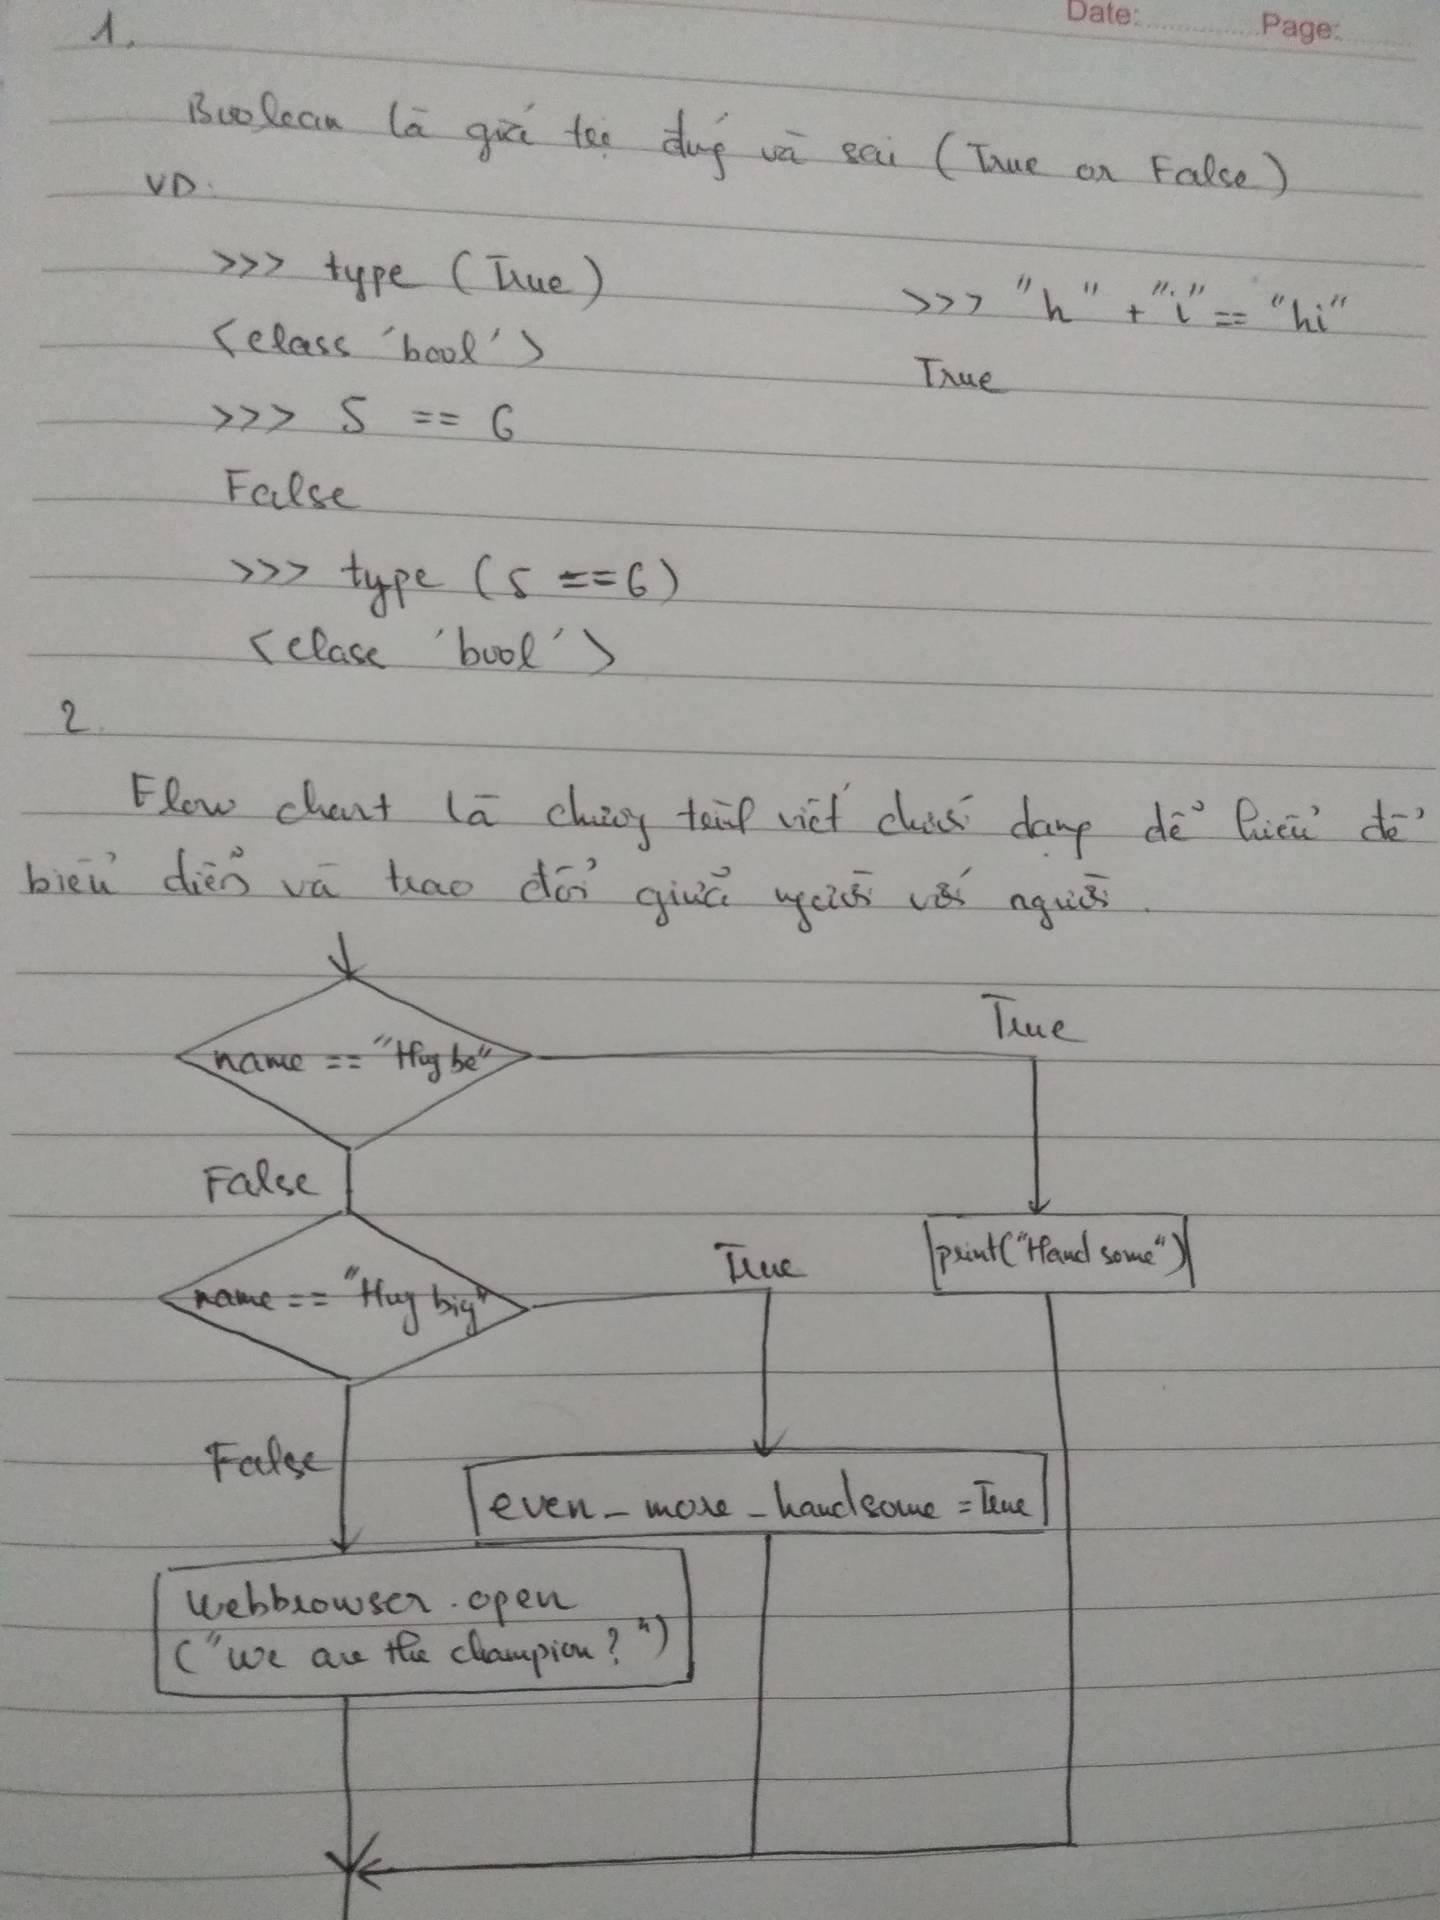 Date: Page:
1.
Boolean là giá trị đúng và sai (True or False)
VD:
>>> type (True)
<class 'bool'>
>>> 5 == 6
False
>>> type (5 == 6)
<class 'bool'>
>>> "h" + "i" == "hi"
True
2.
Flow chart là chương trình viết dưới dạng dễ hiểu để
biểu diễn và trao đổi giữa người với người.
name == "Hug be"
True
False
print("Hand some")
name == "Hug big"
True
False
even_more_handsome = True
webbrowser.open
("we are the champion?")